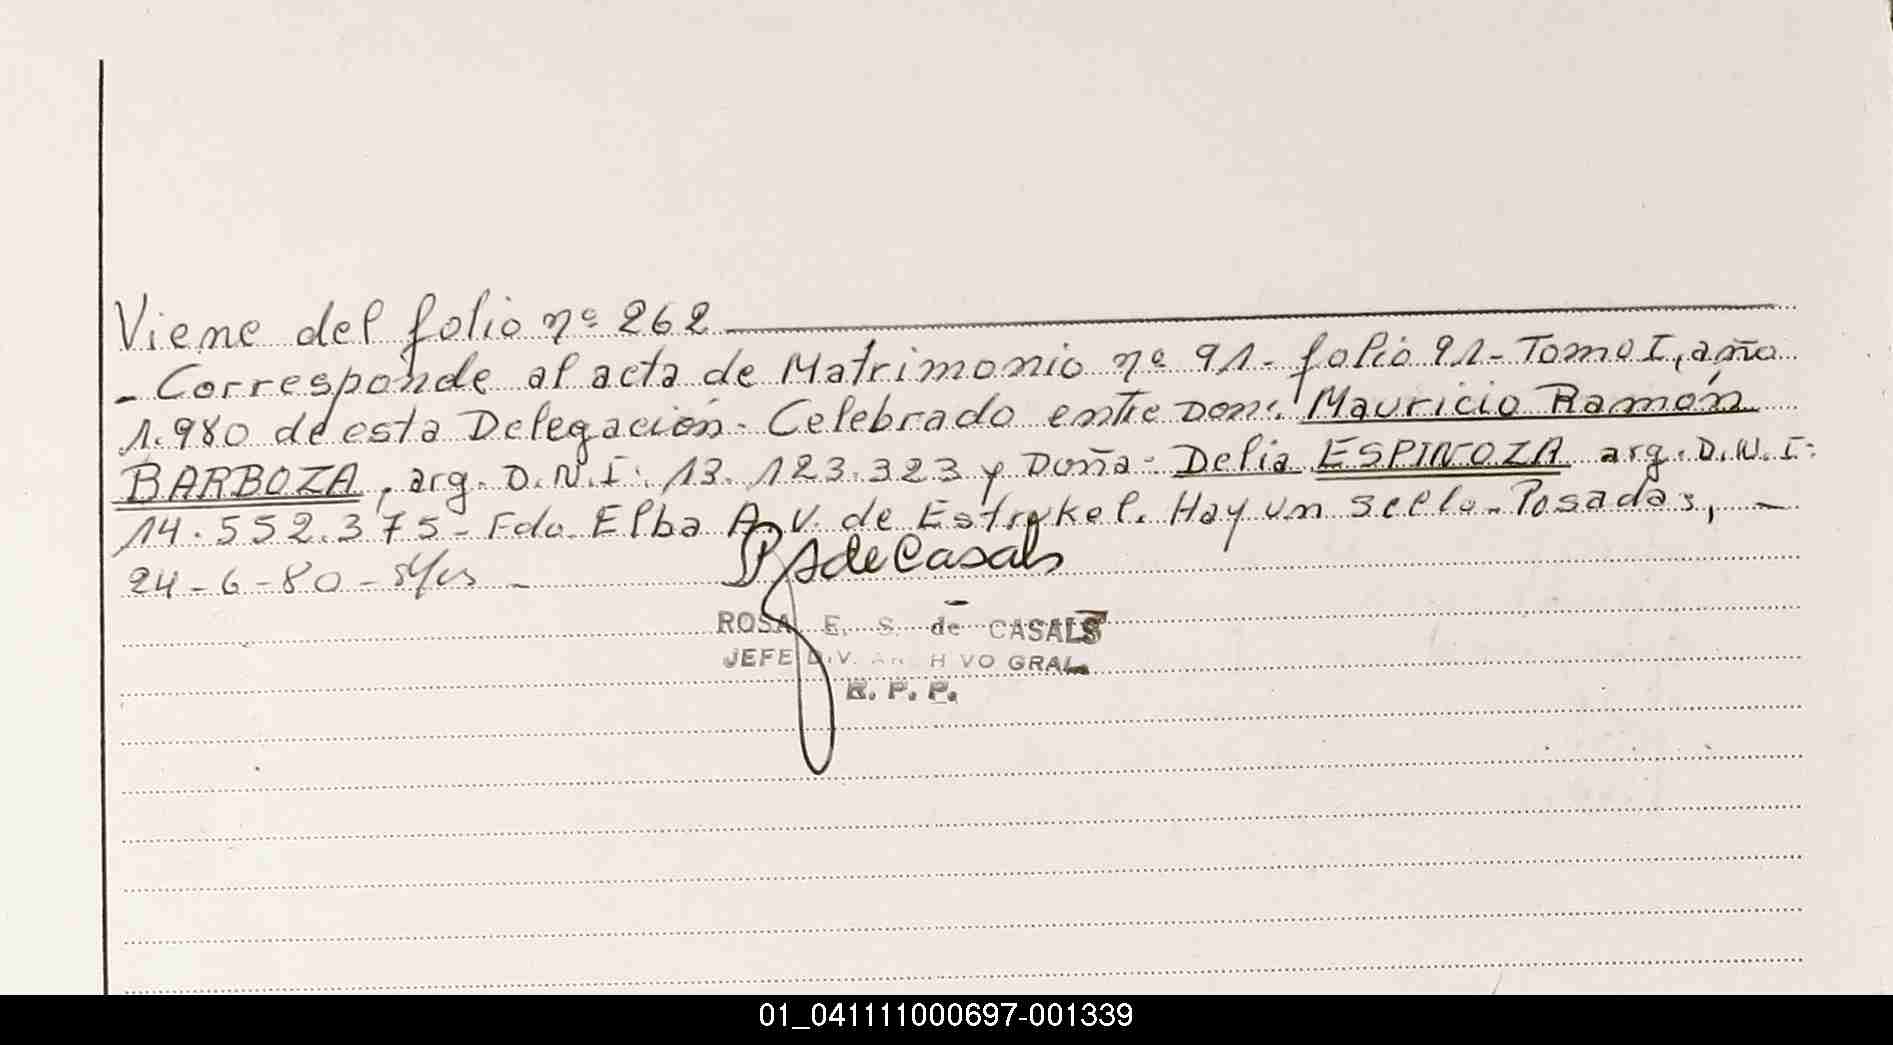 Viene del folio nº 262
- Corresponde al acta de Matrimonio nº 91- folio 91- Tomo I, año
1.980 de esta Delegación- Celebrado entre Don: Mauricio Ramón
BARBOZA, arg. D.N.I: 13.123.323 y Doña: Delia ESPINOZA arg. D.N.I:
14.552.375- Fdo. Elba A. V. de Hay un sello- Posadas, -
24-6-80-
de Casals
ROSA E. S. de CASALS
JEFE DIV. ARCHIVO GRAL.
R. P. P.
01_041111000697-001339